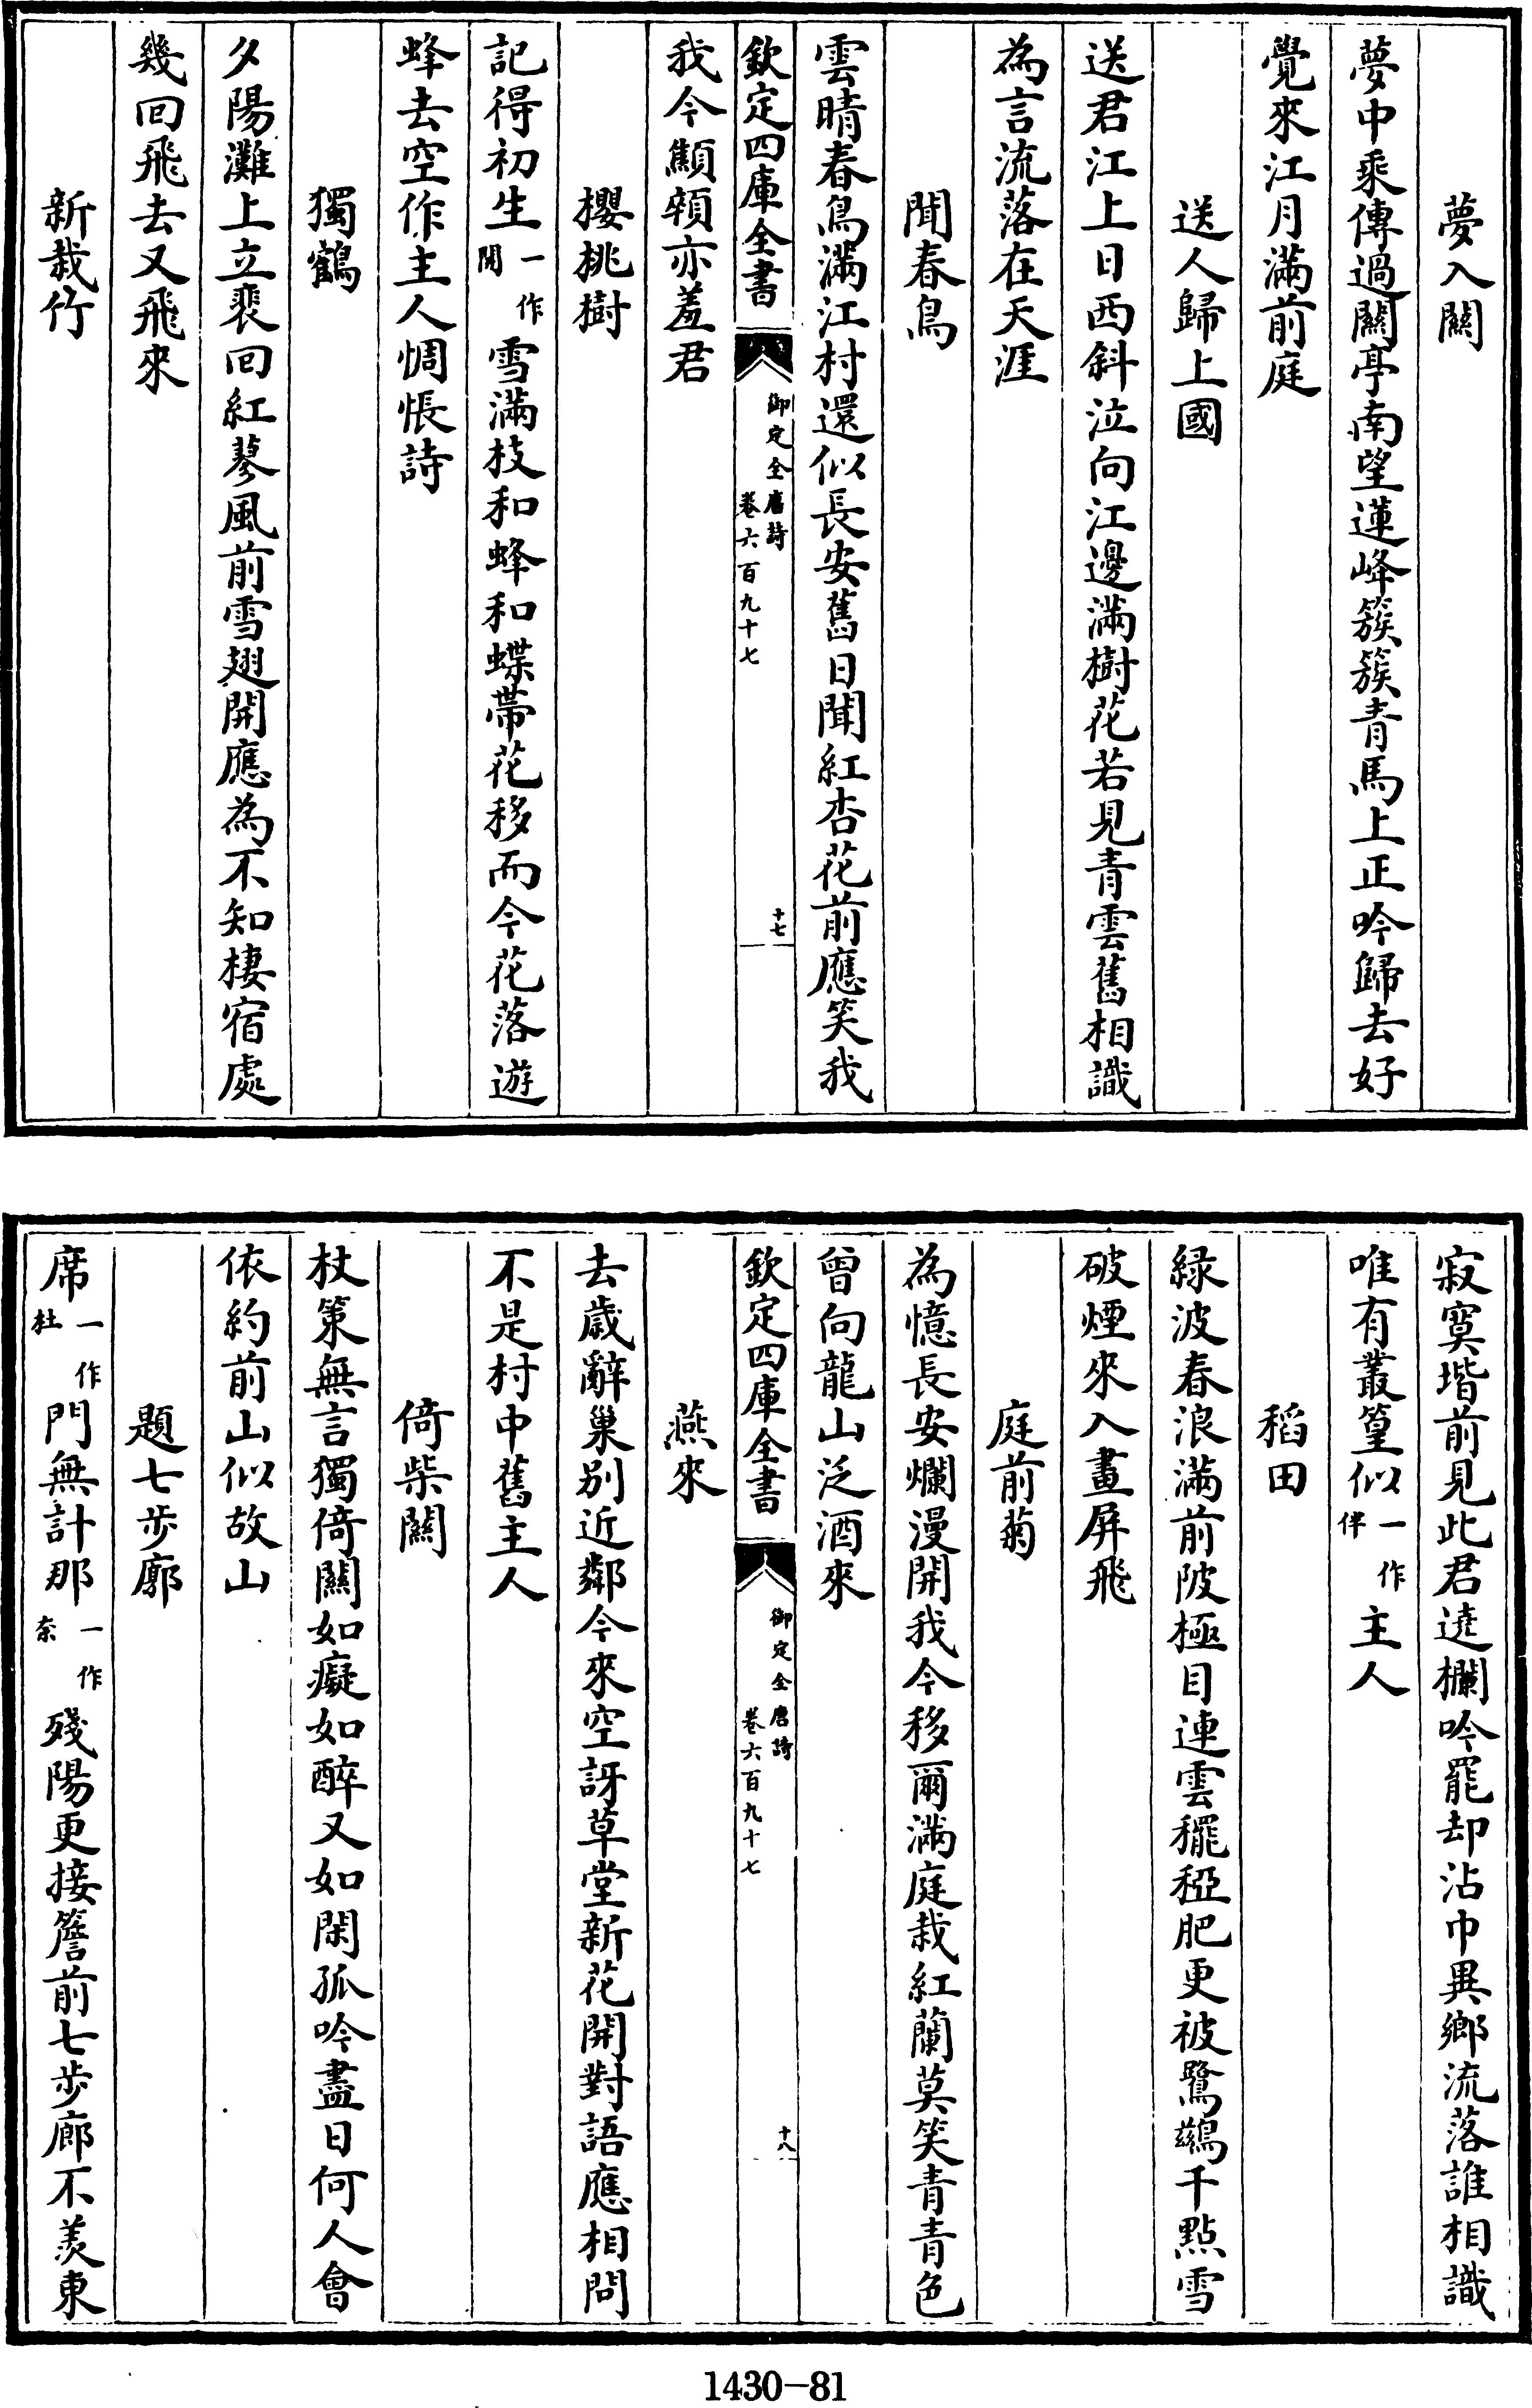 夢入關
夢中乘傳過關亭南望蓮峰簇簇青馬上正吟歸去好
覺來江月滿前庭
送人歸上國
送君江上日西斜泣向江邊滿樹花若見青雲舊相識
為言流落在天涯
聞春鳥
雲晴春鳥滿江村還似長安舊日聞紅杏花前應笑我
欽定四庫全書 御定全唐詩 卷六百九十七 十七
我今顦顇亦羞君
櫻桃樹
記得初生一作開雪滿枝和蜂和蝶帶花移而今花落遊
蜂去空作主人惆悵詩
獨鶴
夕陽灘上立裴回紅蓼風前雪翅開應為不知棲宿處
幾回飛去又飛來
新栽竹
寂寞堦前見此君遶欄吟罷却沾巾異鄉流落誰相識
唯有叢篁似一作伴主人
稻田
綠波春浪滿前陂極目連雲䆉稏肥更被鷺鷀千點雪
破煙來入畫屏飛
庭前菊
為憶長安爛漫開我今移爾滿庭栽紅蘭莫笑青青色
曾向龍山泛酒來
欽定四庫全書 御定全唐詩 卷六百九十七 十八
燕來
去歲辭巢別近鄰今來空訝草堂新花開對語應相問
不是村中舊主人
倚柴關
杖策無言獨倚關如癡如醉又如閑孤吟盡日何人會
依約前山似故山
題七步廊
席一作杜門無計那一作奈殘陽更接簷前七步廊不羨東
1430-81